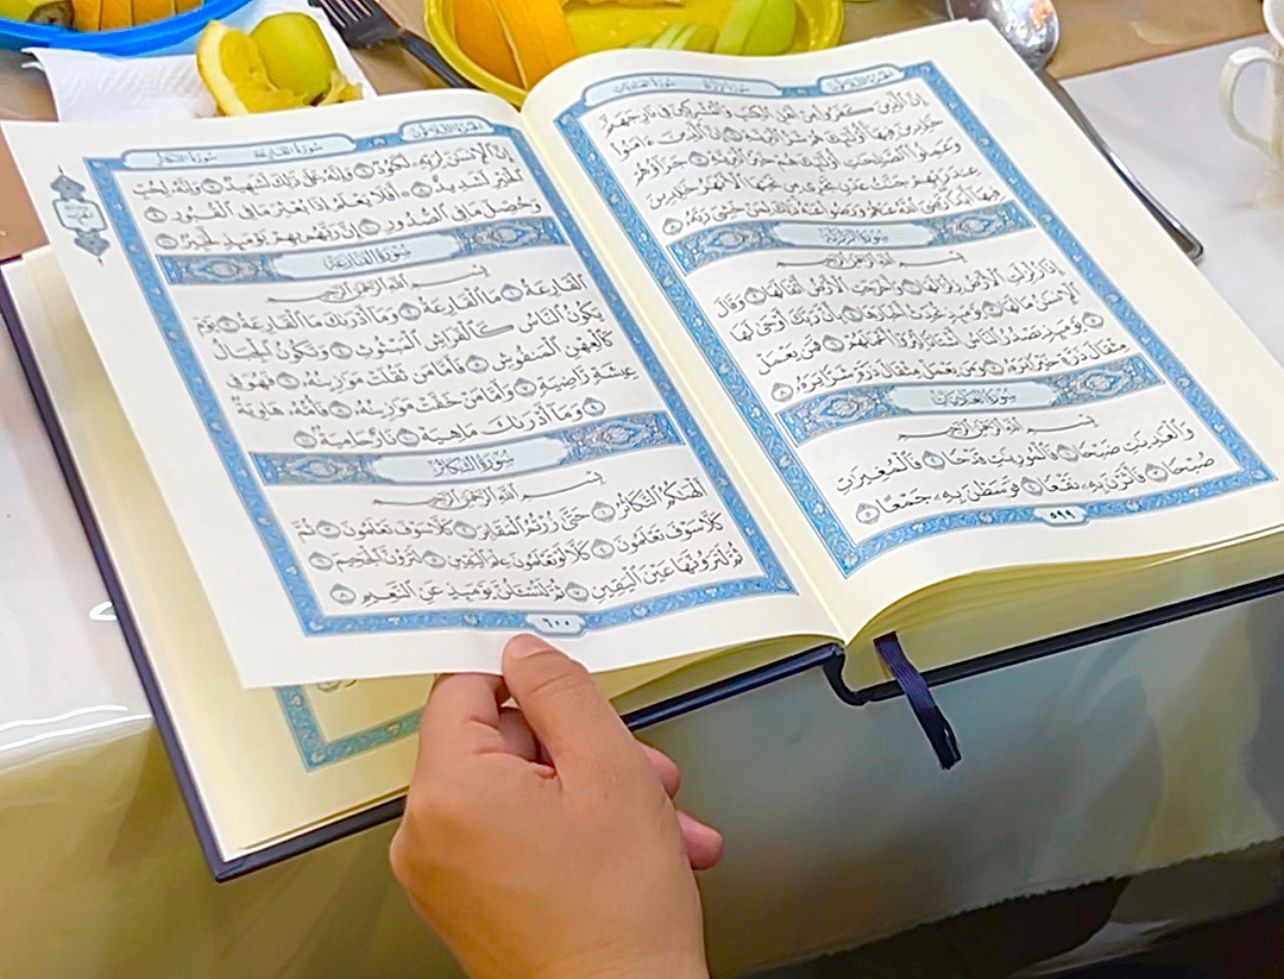 الجزء الثلاثون سورة الزلزلة سورة العاديات
إِنَّ ٱلَّذِينَ كَفَرُوا۟ مِنْ أَهْلِ ٱلْكِتَـٰبِ وَٱلْمُشْرِكِينَ فِى نَارِ جَهَنَّمَ
خَـٰلِدِينَ فِيهَآ أُو۟لَـٰٓئِكَ هُمْ شَرُّ ٱلْبَرِيَّةِ ٦ إِنَّ ٱلَّذِينَ ءَامَنُوا۟
وَعَمِلُوا۟ ٱلصَّـٰلِحَـٰتِ أُو۟لَـٰٓئِكَ هُمْ خَيْرُ ٱلْبَرِيَّةِ ٧ جَزَآؤُهُمْ
عِندَ رَبِّهِمْ جَنَّـٰتُ عَدْنٍ تَجْرِى مِن تَحْتِهَا ٱلْأَنْهَـٰرُ خَـٰلِدِينَ
فِيهَآ أَبَدًا رَّضِىَ ٱللَّهُ عَنْهُمْ وَرَضُوا۟ عَنْهُ ذَٰلِكَ لِمَنْ خَشِىَ رَبَّهُۥ ٨
سُورَةُ الزَّلْزَلَةِ
بِسْمِ ٱللَّهِ ٱلرَّحْمَـٰنِ ٱلرَّحِيمِ
إِذَا زُلْزِلَتِ ٱلْأَرْضُ زِلْزَالَهَا ١ وَأَخْرَجَتِ ٱلْأَرْضُ أَثْقَالَهَا ٢ وَقَالَ
ٱلْإِنسَـٰنُ مَا لَهَا ٣ يَوْمَئِذٍ تُحَدِّثُ أَخْبَارَهَا ٤ بِأَنَّ رَبَّكَ أَوْحَىٰ لَهَا
٥ يَوْمَئِذٍ يَصْدُرُ ٱلنَّاسُ أَشْتَاتًا لِّيُرَوْا۟ أَعْمَـٰلَهُمْ ٦ فَمَن يَعْمَلْ
مِثْقَالَ ذَرَّةٍ خَيْرًا يَرَهُۥ ٧ وَمَن يَعْمَلْ مِثْقَالَ ذَرَّةٍ شَرًّا يَرَهُۥ ٨
سُورَةُ العَادِيَاتِ
بِسْمِ ٱللَّهِ ٱلرَّحْمَـٰنِ ٱلرَّحِيمِ
وَٱلْعَـٰدِيَـٰتِ ضَبْحًا ١ فَٱلْمُورِيَـٰتِ قَدْحًا ٢ فَٱلْمُغِيرَٰتِ
صُبْحًا ٣ فَأَثَرْنَ بِهِۦ نَقْعًا ٤ فَوَسَطْنَ بِهِۦ جَمْعًا ٥
٥٩٩
الجزء الثلاثون سورة القارعة سورة التكاثر
إِنَّ ٱلْإِنسَـٰنَ لِرَبِّهِۦ لَكَنُودٌ ٦ وَإِنَّهُۥ عَلَىٰ ذَٰلِكَ لَشَهِيدٌ ٧ وَإِنَّهُۥ لِحُبِّ
ٱلْخَيْرِ لَشَدِيدٌ ٨ أَفَلَا يَعْلَمُ إِذَا بُعْثِرَ مَا فِى ٱلْقُبُورِ ٩
وَحُصِّلَ مَا فِى ٱلصُّدُورِ ١٠ إِنَّ رَبَّهُم بِهِمْ يَوْمَئِذٍ لَّخَبِيرٌۢ ١١
سُورَةُ القَارِعَةِ
بِسْمِ ٱللَّهِ ٱلرَّحْمَـٰنِ ٱلرَّحِيمِ
ٱلْقَارِعَةُ ١ مَا ٱلْقَارِعَةُ ٢ وَمَآ أَدْرَىٰكَ مَا ٱلْقَارِعَةُ ٣ يَوْمَ
يَكُونُ ٱلنَّاسُ كَٱلْفَرَاشِ ٱلْمَبْثُوثِ ٤ وَتَكُونُ ٱلْجِبَالُ
كَٱلْعِهْنِ ٱلْمَنفُوشِ ٥ فَأَمَّا مَن ثَقُلَتْ مَوَٰزِينُهُۥ ٦ فَهُوَ فِى
عِيشَةٍ رَّاضِيَةٍ ٧ وَأَمَّا مَنْ خَفَّتْ مَوَٰزِينُهُۥ ٨ فَأُمُّهُۥ هَاوِيَةٌ
٩ وَمَآ أَدْرَىٰكَ مَا هِيَهْ ١٠ نَارٌ حَامِيَةٌۢ ١١
سُورَةُ التَّكَاثُرِ
بِسْمِ ٱللَّهِ ٱلرَّحْمَـٰنِ ٱلرَّحِيمِ
أَلْهَىٰكُمُ ٱلتَّكَاثُرُ ١ حَتَّىٰ زُرْتُمُ ٱلْمَقَابِرَ ٢ كَلَّا سَوْفَ تَعْلَمُونَ ٣ ثُمَّ
كَلَّا سَوْفَ تَعْلَمُونَ ٤ كَلَّا لَوْ تَعْلَمُونَ عِلْمَ ٱلْيَقِينِ ٥ لَتَرَوُنَّ ٱلْجَحِيمَ ٦
ثُمَّ لَتَرَوُنَّهَا عَيْنَ ٱلْيَقِينِ ٧ ثُمَّ لَتُسْـَٔلُنَّ يَوْمَئِذٍ عَنِ ٱلنَّعِيمِ ٨
٦٠٠